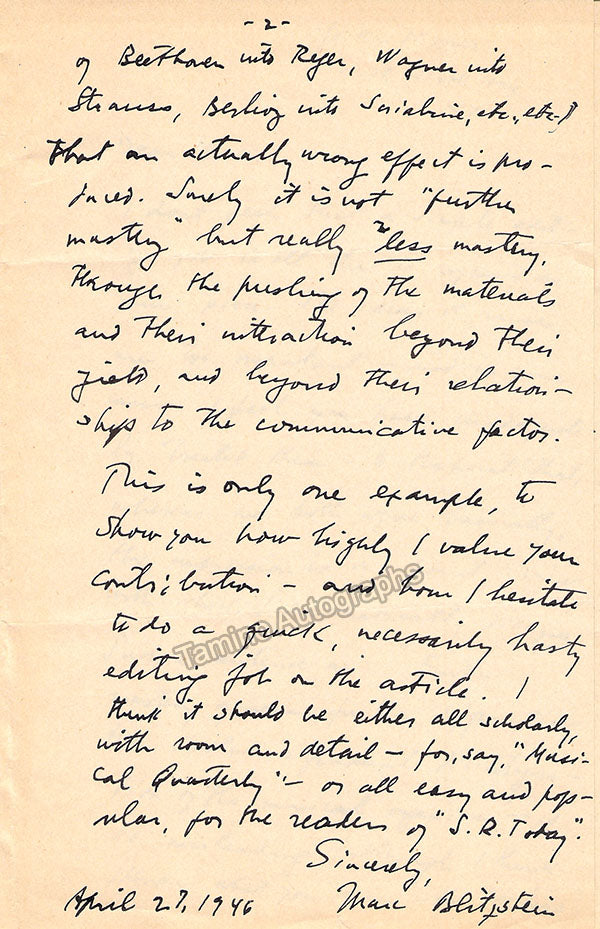 - 2 -
of Beethoven into Reger, Wagner into
Strauss, Berlioz into Scriabine, etc., etc.)
that an actually wrong effect is pro-
duced. Surely it is not "further
mastery" but really "less mastery,
through the pushing of the materials
and their interaction beyond their
field, and beyond their relation-
ships to the communicative factor.
This is only one example, to
show you how highly I value your
contribution - and how I hesitate
to do a quick, necessarily hasty
editing job on the article. I
think it should be either all scholarly,
with room and detail - for, say, "Musi-
cal Quarterly" - or all easy and pop-
ular, for the readers of "S. R. Today".
Sincerely,
Marc Blitzstein
April 27, 1946
Tamino Autographs